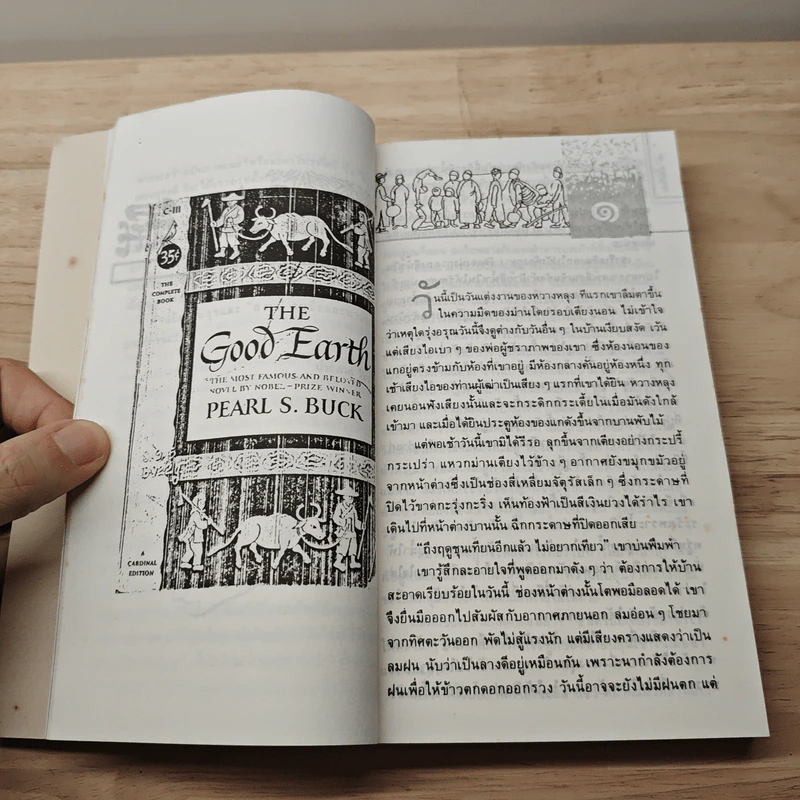 C-III
35¢
THE
COMPLETE
BOOK
THE
Good Earth
"THE MOST FAMOUS AND BELOVED
NOVEL BY NOBEL-PRIZE WINNER
PEARL S. BUCK
A
CARDINAL
EDITION
วันนี้เป็นวันแต่งงานของหวางหลุง ทีแรกเขาลืมตาขึ้น
ในความมืดของม่านโดยรอบเตียงนอน ไม่เข้าใจ
ว่าเหตุใดรุ่งอรุณวันนี้จึงดูต่างกับวันอื่น ๆ ในบ้านเงียบสงัด เว้น
แต่เสียงไอเบา ๆ ของพ่อผู้ชราภาพของเขา ซึ่งห้องนอนของ
แกอยู่ตรงข้ามกับห้องที่เขาอยู่ มีห้องกลางคั่นอยู่ห้องหนึ่ง ทุก
เช้าเสียงไอของท่านผู้เฒ่าเป็นเสียง ๆ แรกที่เขาได้ยิน หวางหลุง
เคยนอนฟังเสียงนั้นและจะกระดิกกระเดี้ยในเมื่อมันดังใกล้
เข้ามา และเมื่อได้ยินประตูห้องของแกดังขึ้นจากบานพับไม้
แต่พอเช้าวันนี้เขามิได้รีรอ ลุกขึ้นจากเตียงอย่างกระปรี้
กระเปร่า แหวกม่านเตียงไว้ข้าง ๆ อากาศยังขมุกขมัวอยู่
จากหน้าต่างซึ่งเป็นช่องสี่เหลี่ยมจัตุรัสเล็ก ๆ ซึ่งกระดาษที่
ปิดไว้ขาดกะรุ่งกะริ่ง เห็นท้องฟ้าเป็นสีเงินยวงได้รำไร เขา
เดินไปที่หน้าต่างบานนั้น ฉีกกระดาษที่ปิดออกเสีย
"ถึงฤดูชุนเทียนอีกแล้ว ไม่อยากเที่ยว" เขาบ่นพึมพำ
เขารู้สึกละอายใจที่พูดออกมาดัง ๆ ว่า ต้องการให้บ้าน
สะอาดเรียบร้อยในวันนี้ ช่องหน้าต่างนั้นโตพอมือลอดได้ เขา
จึงยื่นมือออกไปสัมผัสกับอากาศภายนอก ลมอ่อน ๆ โชยมา
จากทิศตะวันออก พัดไม่สู้แรงนัก แต่มีเสียงครางแสดงว่าเป็น
ลมฝน นับว่าเป็นลางดีอยู่เหมือนกัน เพราะนากำลังต้องการ
ฝนเพื่อให้ข้าวตกดอกออกรวง วันนี้อาจจะยังไม่มีฝนตก แต่